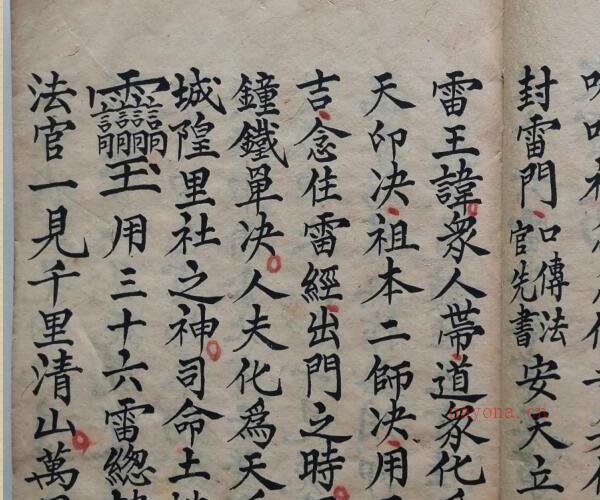 封雷門口傳法官先書安天立
雷王諱衆人帶道衆化
天卯决祖本二師决用
吉念住雷經出門之時
鐘鐵單决人夫化爲天
城隍里社之神司命土
用三十六雷總
法官一見千里清山萬